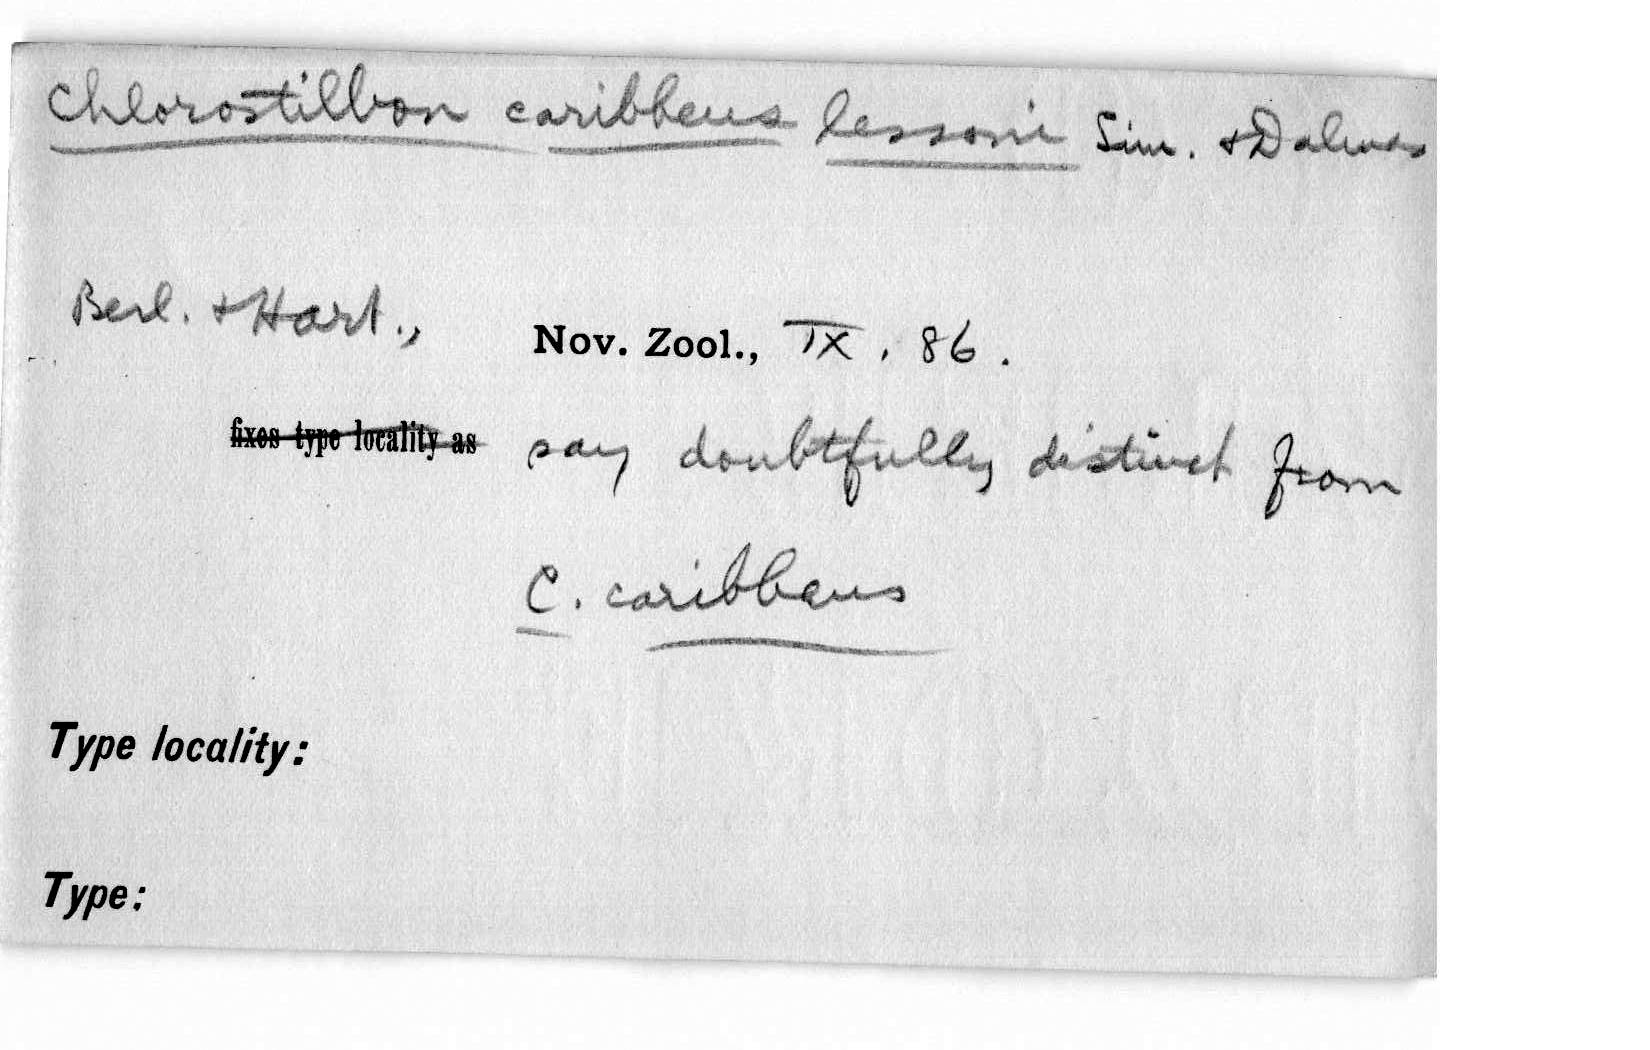 Chlorostilbon caribbeus lessoni Sim. & Dalmas
Berl. & Hart., Nov. Zool., IX, 86.
fixes type locality as say doubtfully distinct from
C. caribbeus
Type locality:
Type: